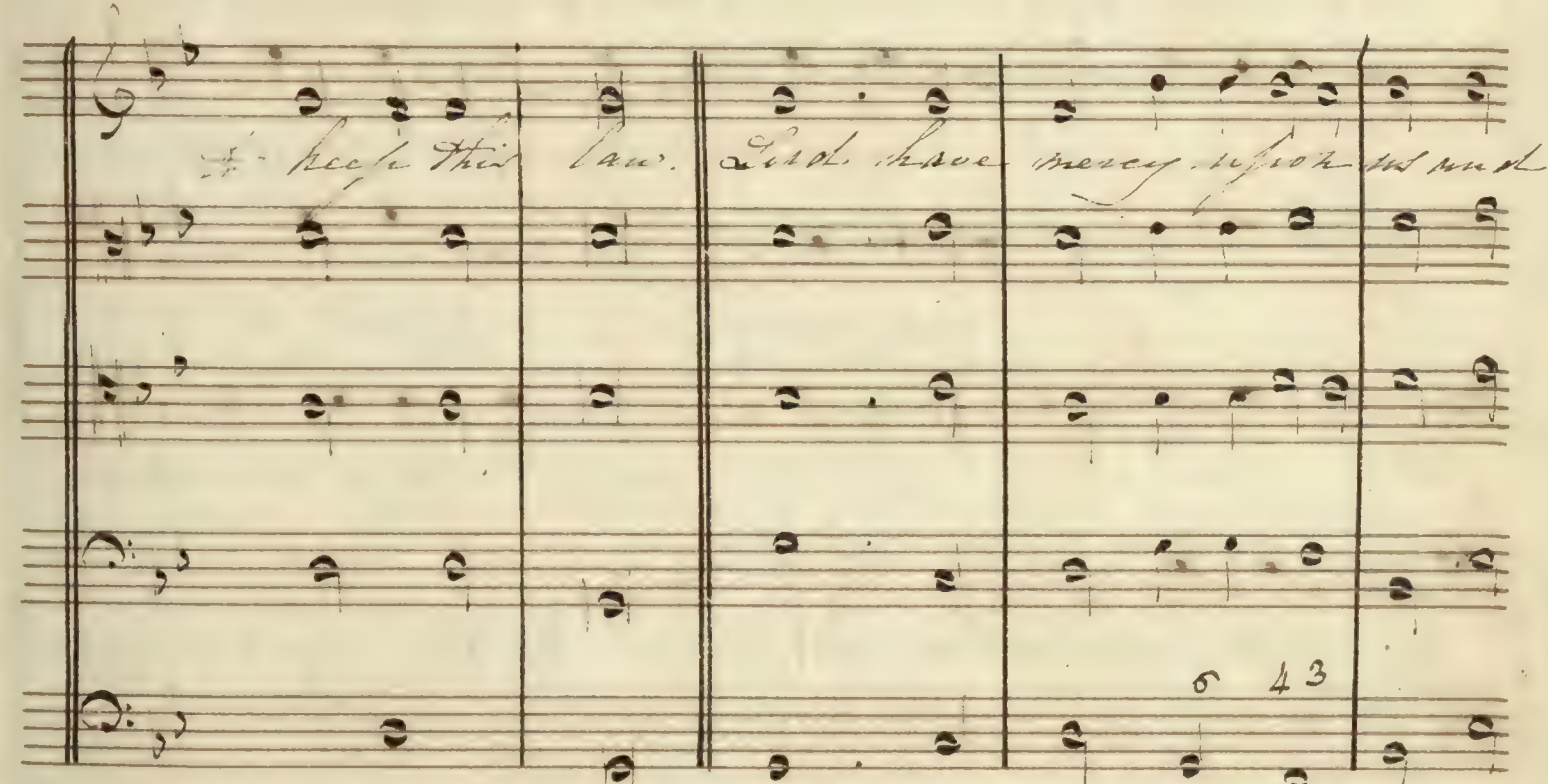 to keep this law. Lord have mercy upon us and
6 4 3